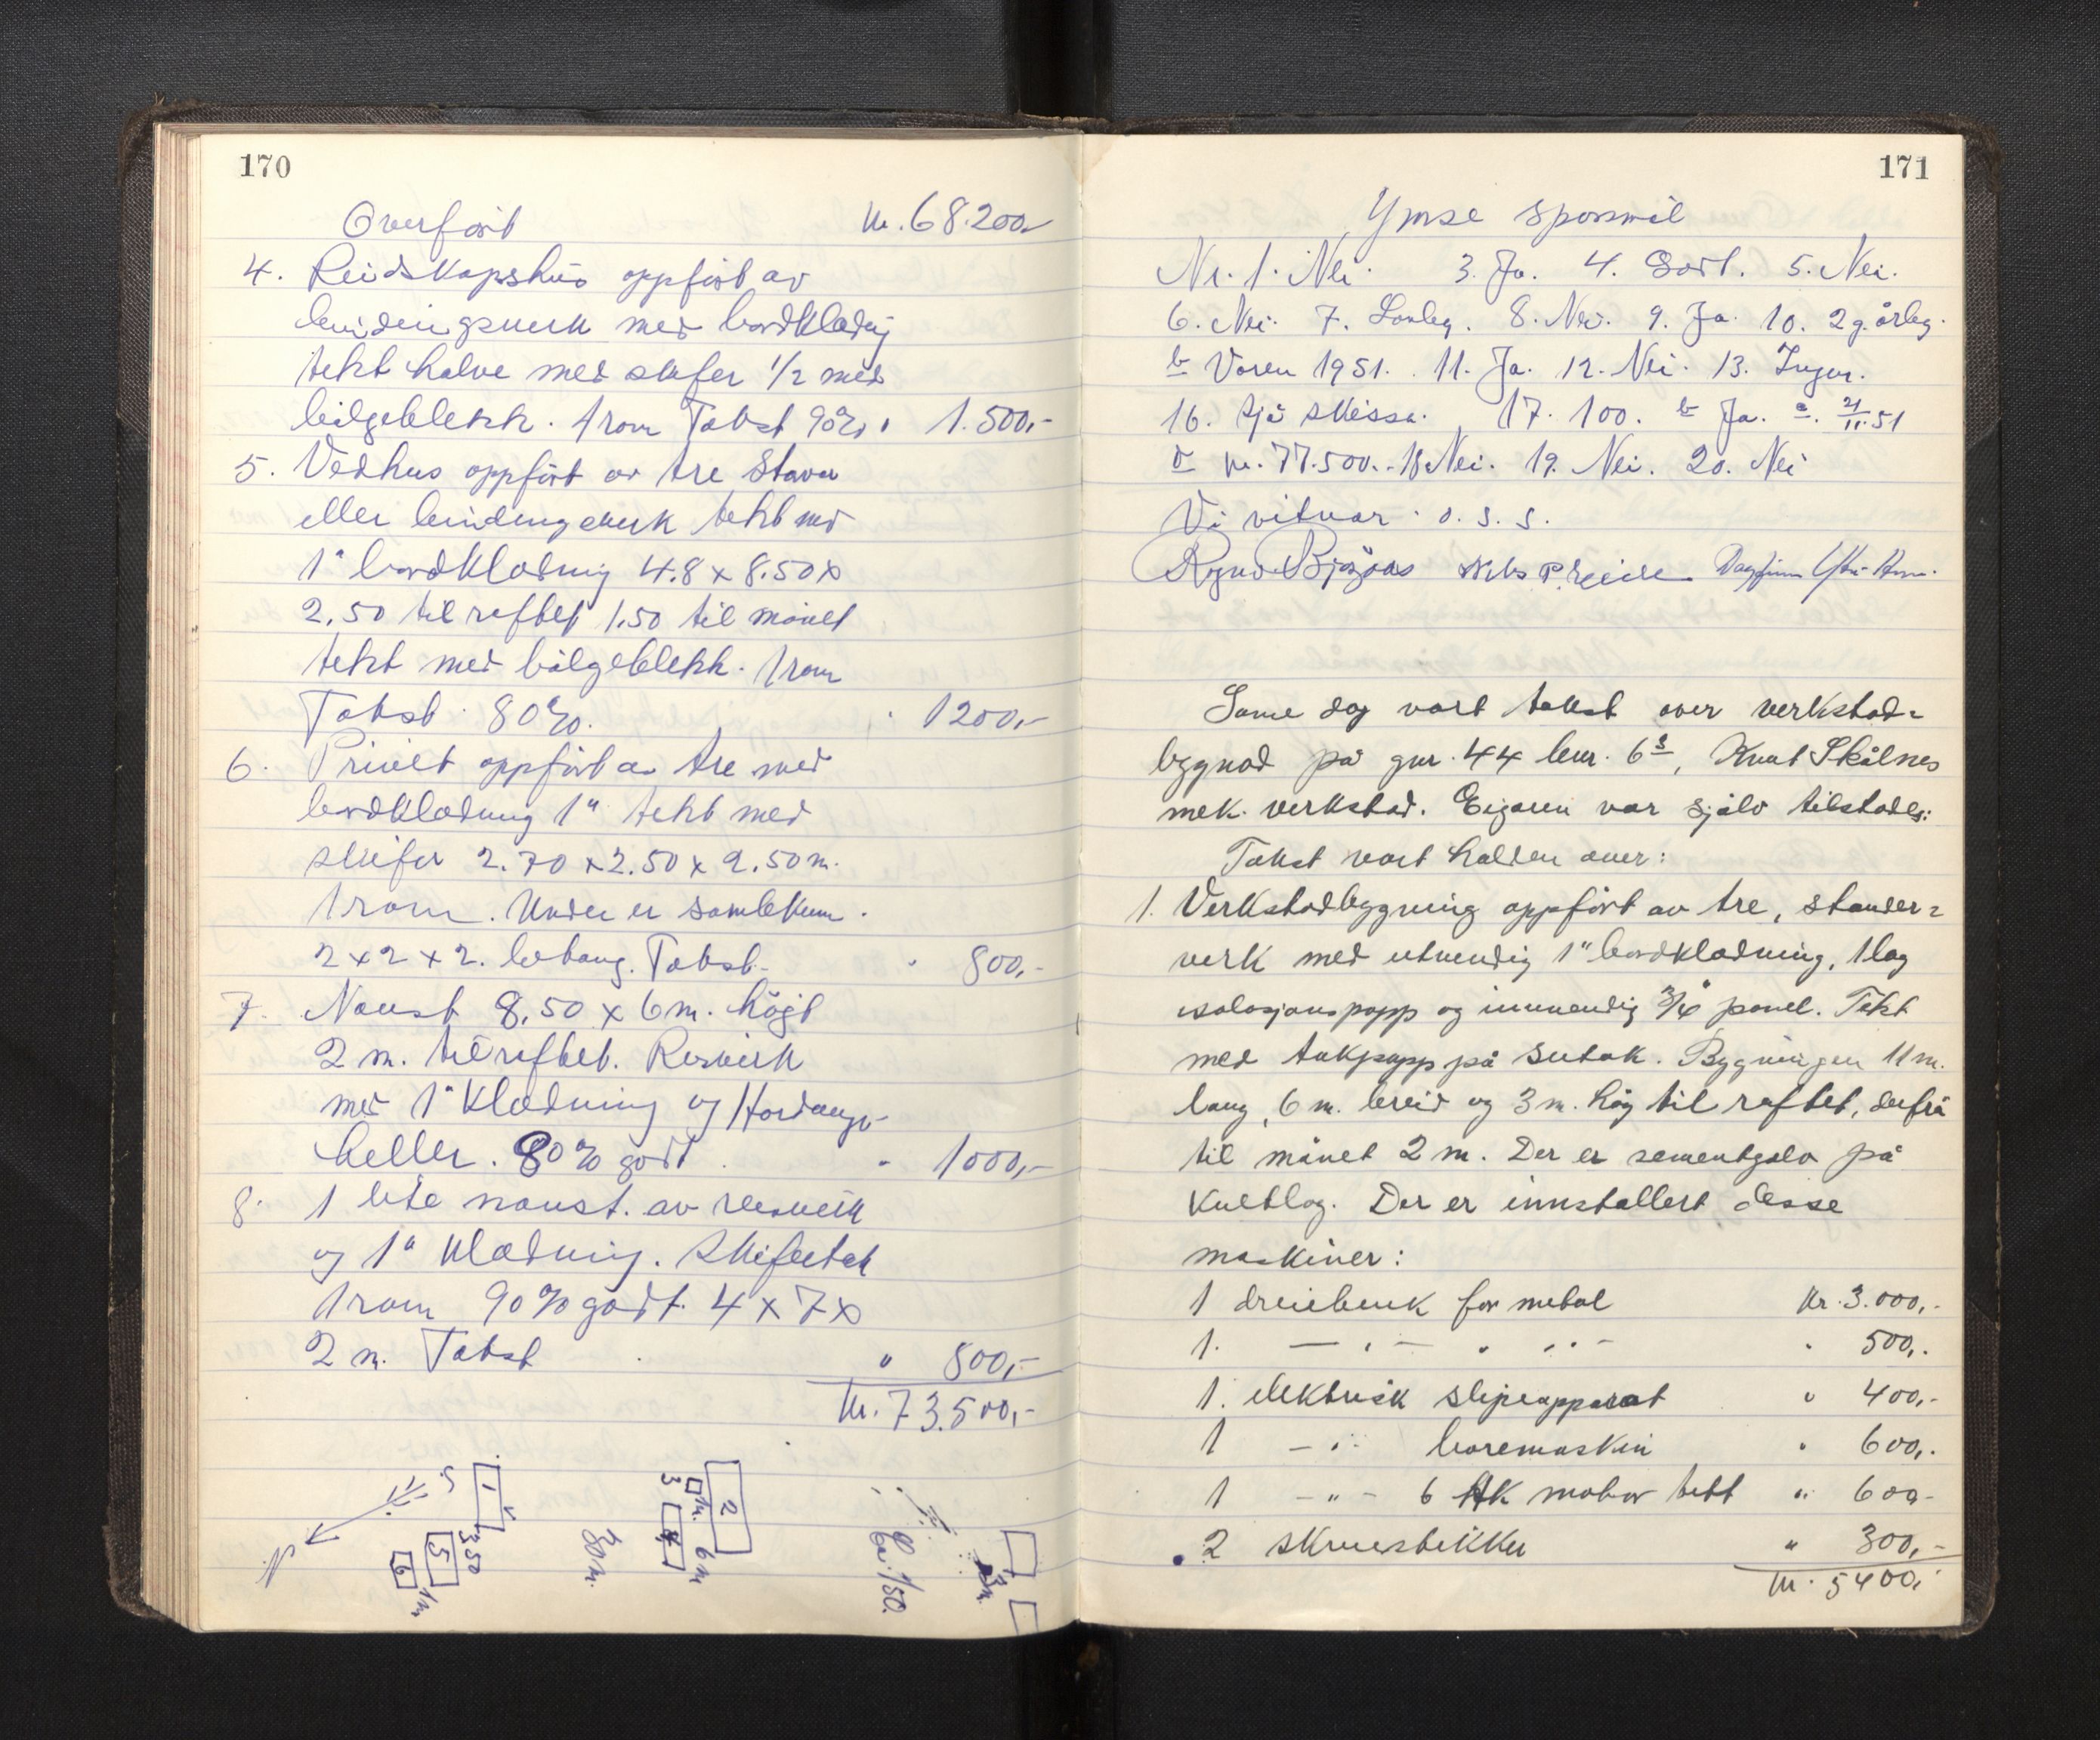 170
Overført kr. 68.200,-
4. Reidskapshus oppført av
bindingsverk med bordklædnig
tekt halve med skifer 1/2 med
bølgeblekk. 1 rom Takst 90% " 1.500,-
5. Vedhus oppført av tre Staver
eller bindingsverk tekt med
1" bordklædnig 4.8 x 8.50 x
2.50 til raftet 1.50 til mønet
tekt med bølgeblekk. 1 rom
Takst 80%. " 1200,-
6. Privet oppført av tre med
bordklædning 1" tekt med
skifer 2.70 x 2.50 x 2.50 m.
1 rom. Under er samlekum.
2 x 2 x 2. betong. Takst. " 800,-
7. Naust 8,50 x 6 m. høgt
2 m. til raftet. Reisverk
med 1" Klædning og Hardange-
heller. 80% godt. " 1000,-
8. 1 lite naust. av reisverk
og 1" klædnig. Skifertak
1 rom 90% godt. 4 x 7 x
2 m. Takst " 800,-
kr. 73.500,-
N S 1 5 3.50 6 1 m.
30 m. 3 1 m. 2 4 6 m
Ca. 1/50.
171
Ymse spørsmål
Nr. 1. Nei. 3. Ja. 4. Godt. 5. Nei.
6. Nei. 7. Lovleg. 8. Nei. 9. Ja. 10. 2 g. årleg.
b Våren 1951. 11. Ja. 12. Nei. 13. Ingen.
16. Sjå skissa. 17. 100. b Ja. c. 21/11.51
d kr. 77.500.- 18 Nei. 19. Nei. 20. Nei
Vi vitnar o. s. s.
Nils P.
Same dag vart takst over verkstad=
bygnad på gnr. 44 bnr. 63, Knut Skålnes
mek. verkstad. Eigaren var sjølv tilstades:
Takst vart halden over:
1. Verkstadbygning oppført av tre, stender=
verk med utvendig 1" bordklædning, 1 lag
isolasjonspapp og innvendig 3/4" panel. Tekt
med takpapp på sutak. Bygningen 11 m.
lang, 6 m. breid og 3 m. høg til raftet, derfrå
til mønet 2 m. Der er sementgolv på
Kultlag. Der er innstallert desse
maskiner:
1 dreiebenk for metal kr. 3.000,-
1. — " — " " " - " 500,-
1. elektrisk slipeapparat " 400,-
1 — " - boremaskin " 600,-
1 - " - 6 HK motor tett " 600-
2 skruestikker " 300,-
kr. 5400,-